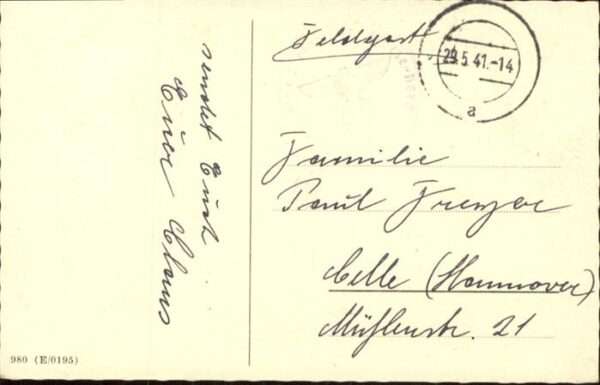 Feldpost
29.5.41.-14
a
Familie
Paul Freyer
Celle (Hannover)
Mühlenstr. 21
sendet Euch
Euer Claus
980 (E/0195)